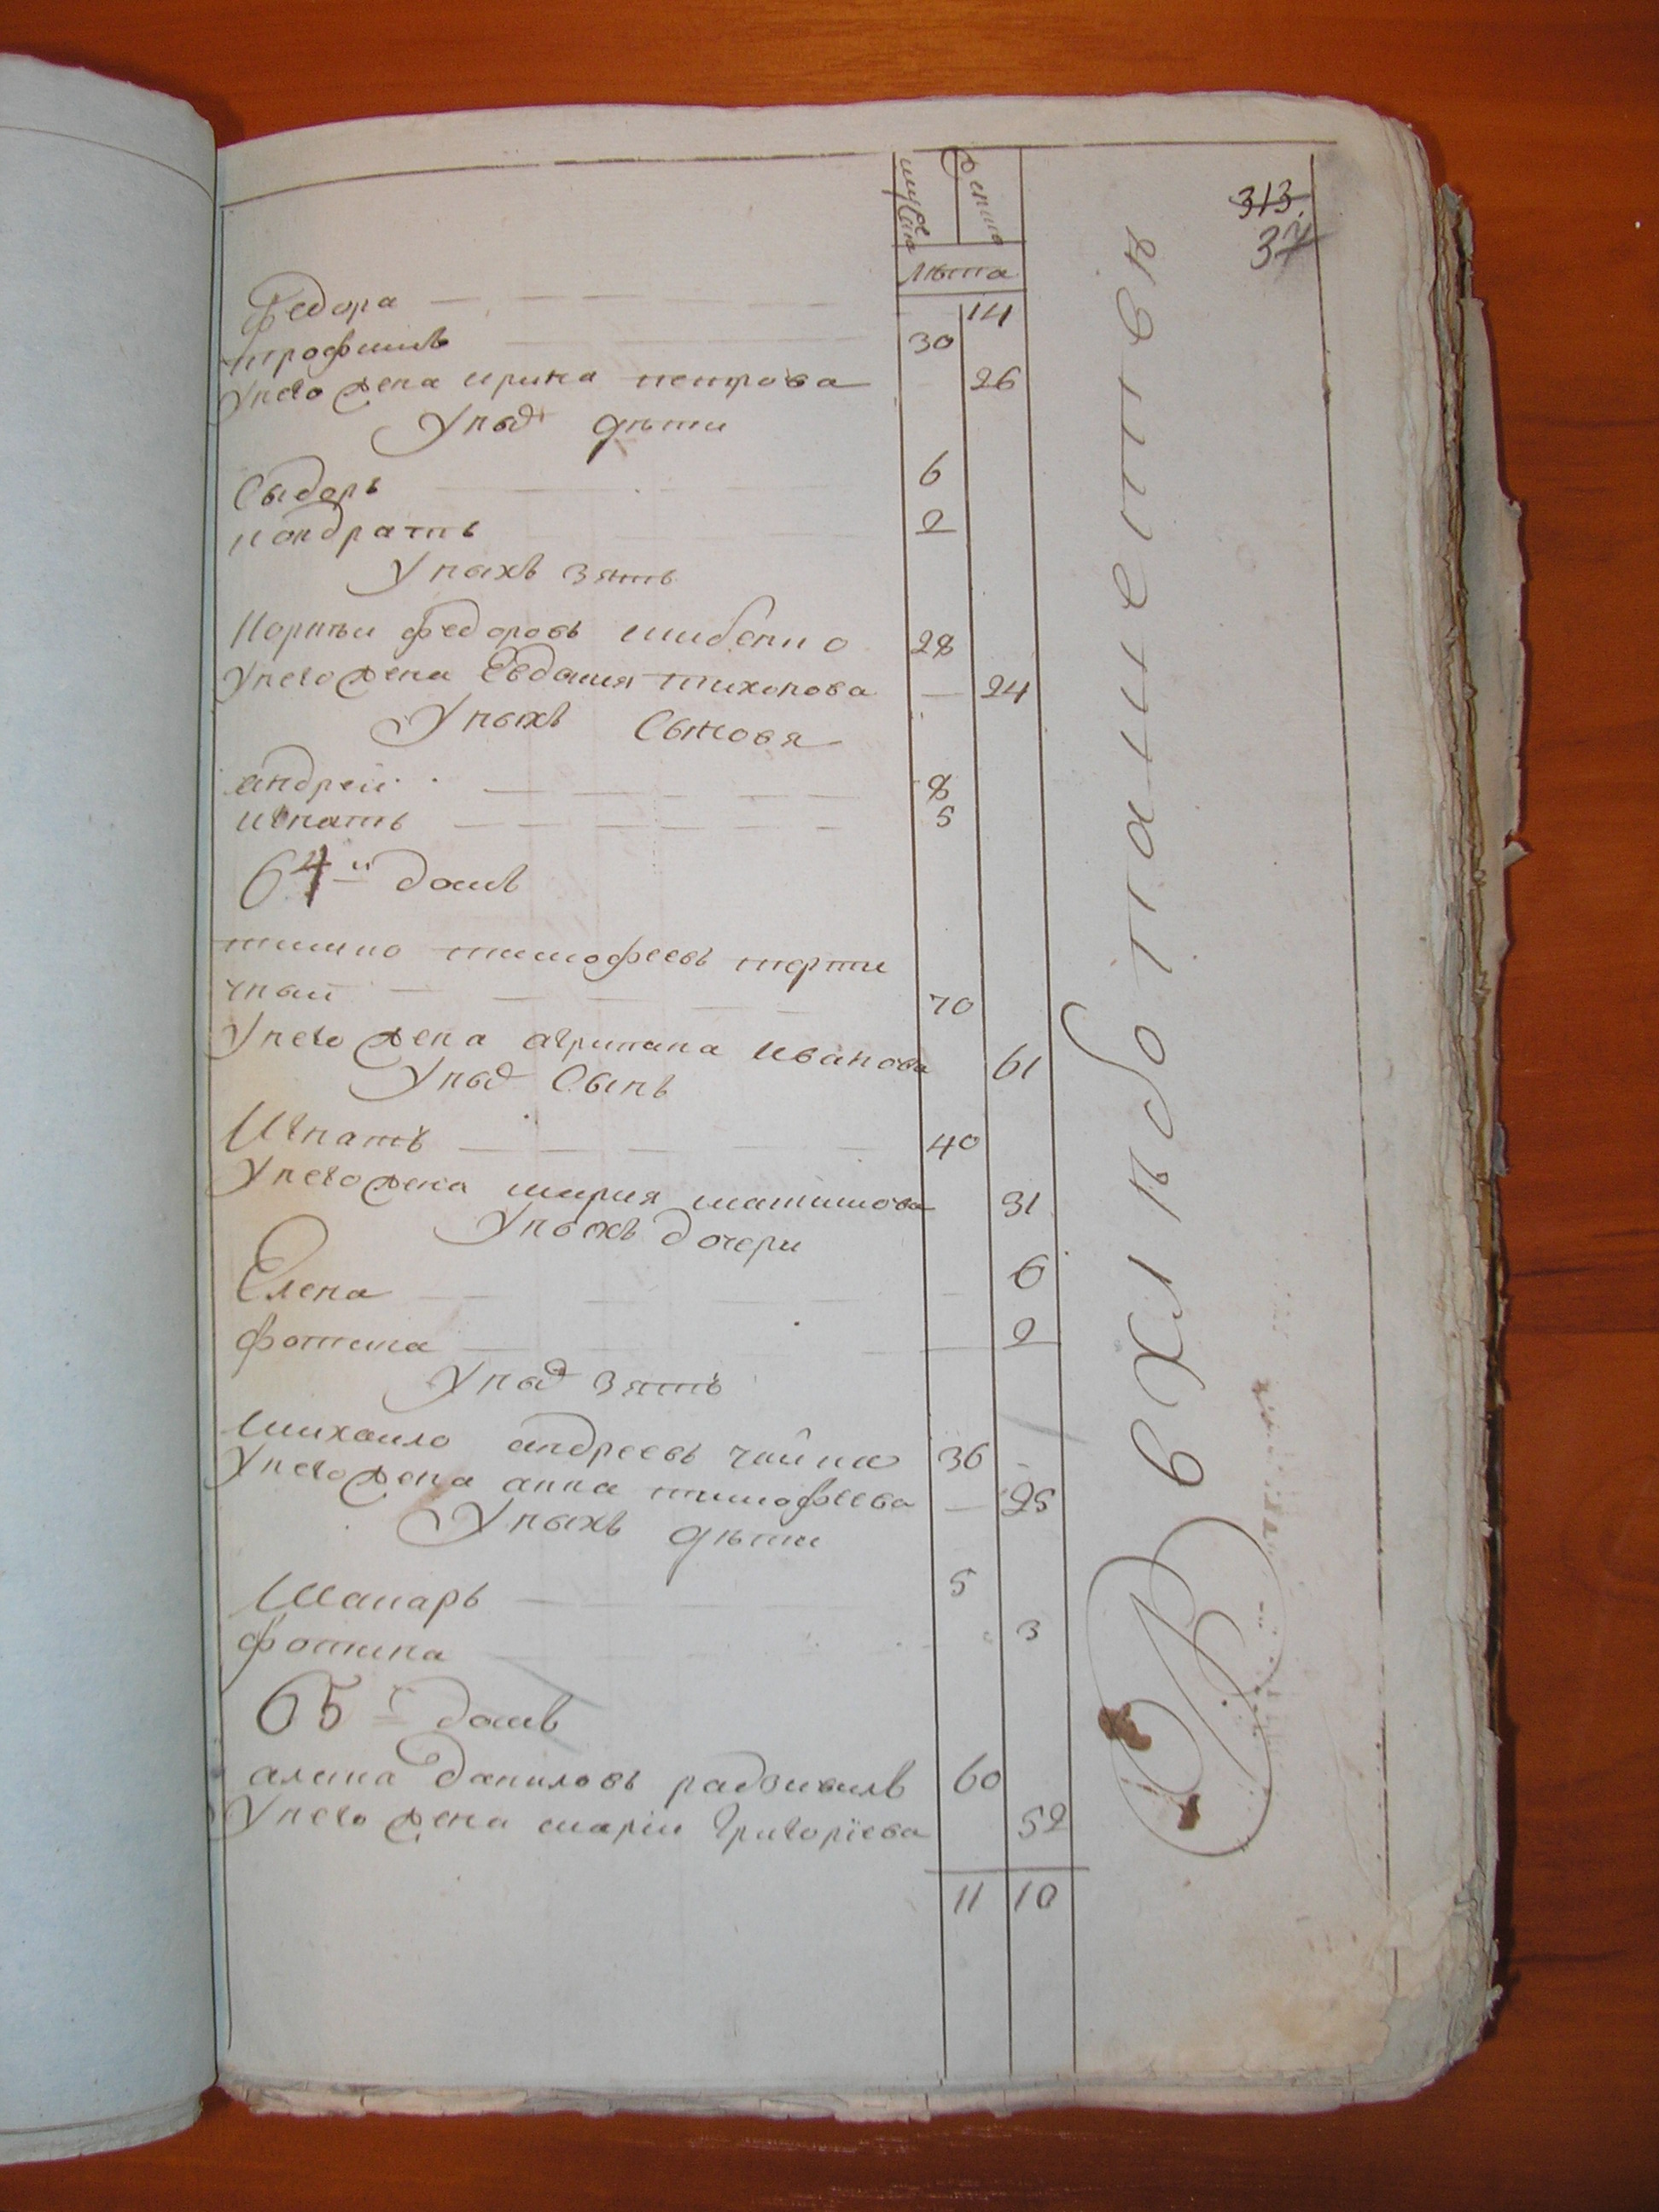 313.
37
мужеска
женска
лѣта
Федора 14
трофимъ 30
Унего жена ирина петрова 26
Уныхъ дѣти
Сыдоръ 6
кондратъ 2
Уныхъ зять
Корнѣи федоровъ шибенко 28
Унего жена Евдокия тихонова 24
Уныхъ Сыновя
андрей 8
игнатъ 5
64й домъ
тишко тимофеевъ торти
чный 70
Унего жена агрипина иванова 61
Уныхъ Сынъ
Игнатъ 40
Унего жена мария максимова 31
Уныхъ дочери
Елена 6
фотина 2
Уныхъ зять
михаило андреевъ чайка 36
Унего жена анна тимофеева 25
Уныхъ дѣти
Макаръ 5
фотина 3
65й домъ
алекса даниловъ радзивилъ 60
Унего жена марія григоріева 52
11 10